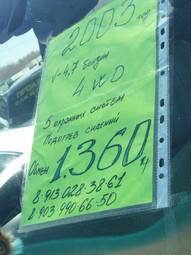 2003 год
V-4,7 бензин
4 WD
5 охранных систем
Подогрев сидений
Обмен 1.360
8-913 028-38-61
8-903 990-66-50